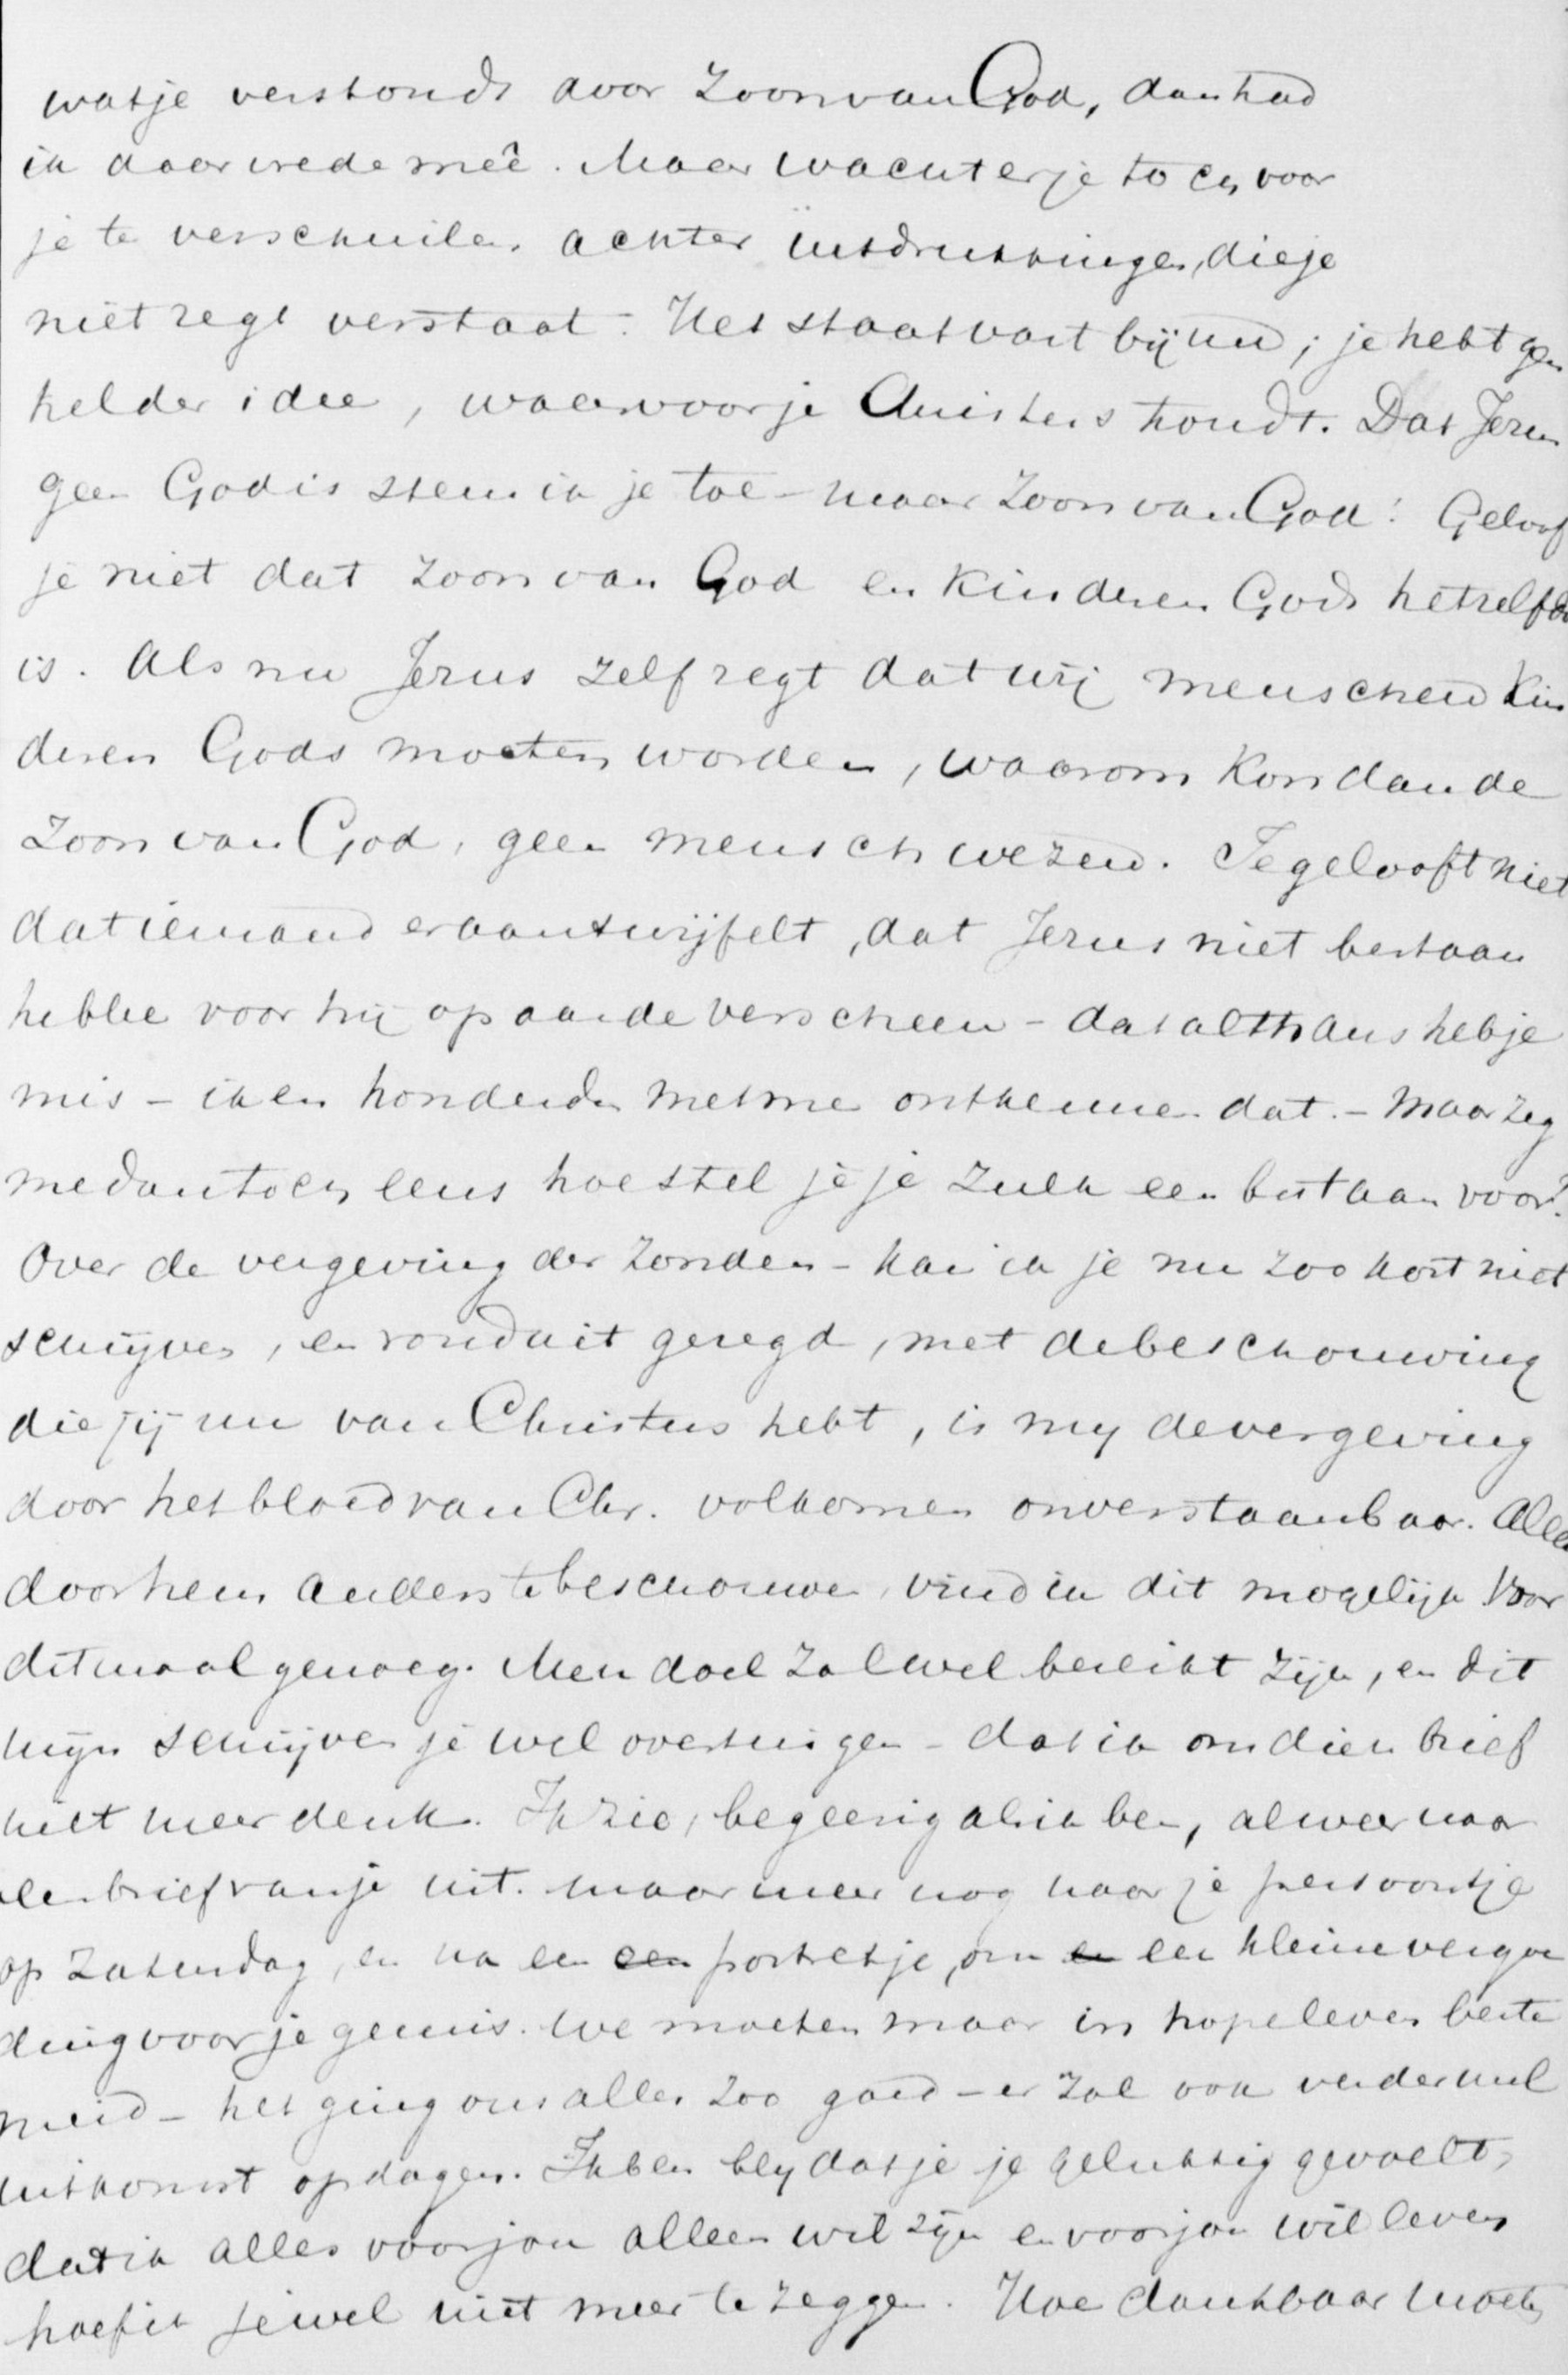 wat je verstondt door Zoon van God, dan had
ik daar vrede meê. Maar wacht er je toch voor
je te verschuilen achter uitdrukkingen, die je
niet regt verstaat. Het staat vast bij mij; je hebt geen
helder idee, waarvoor je Christus houdt. Dat Jezus
geen God is stem ik je toe – maar Zoon van God! Geloof
je niet dat zoon van God en Kinderen Gods hetzelfde
is. Als nu Jezus zelf zegt dat wij menschen Kin
deren Gods moeten worden, waarom kon dan de
Zoon van God, geen mensch wezen. Je gelooft niet
dat iemand eraan twijfelt, dat Jezus niet bestaan
hebbe voor hij op aarde verscheen – dat althans heb je
mis – ik en honderden met me ontkennen dat. – Maar zeg
me dan toch eens hoe stel je je zulk een bestaan voor?
Over de vergeving der zonden – kan ik je nu zoo kort niet
schrijven, en ronduit gezegd, met de beschouwing
die jij nu van Christus hebt, is my de vergeving
door het bloed van Chr. volkomen onverstaanbaar. Alleen
door hem anders te beschouwen, vind ik dit mogelijk. Voor
ditmaal genoeg. Mijn doel zal wel bereikt zijn, en dit
mijn schrijven je wel overtuigen – dat ik om dien brief
niet meer denk. Ik zie, begeerig als ik ben, alweer naar
een brief van je uit. maar meer nog naar je persoontje
op Zaturdag, en na een een portretje, om en een kleine vergoe
ding voor je gemis. We moeten maar in hope leven beste
meid – het ging ons alles zoo goed – er zal ook verder wel
uitkomst opdagen. Ik ben bly dat je je gelukkig gevoelt,
dat ik alles voor jou alleen wil zijn en voor jou wil leven
hoef ik je wel niet meer te zeggen. Hoe dankbaar moeten